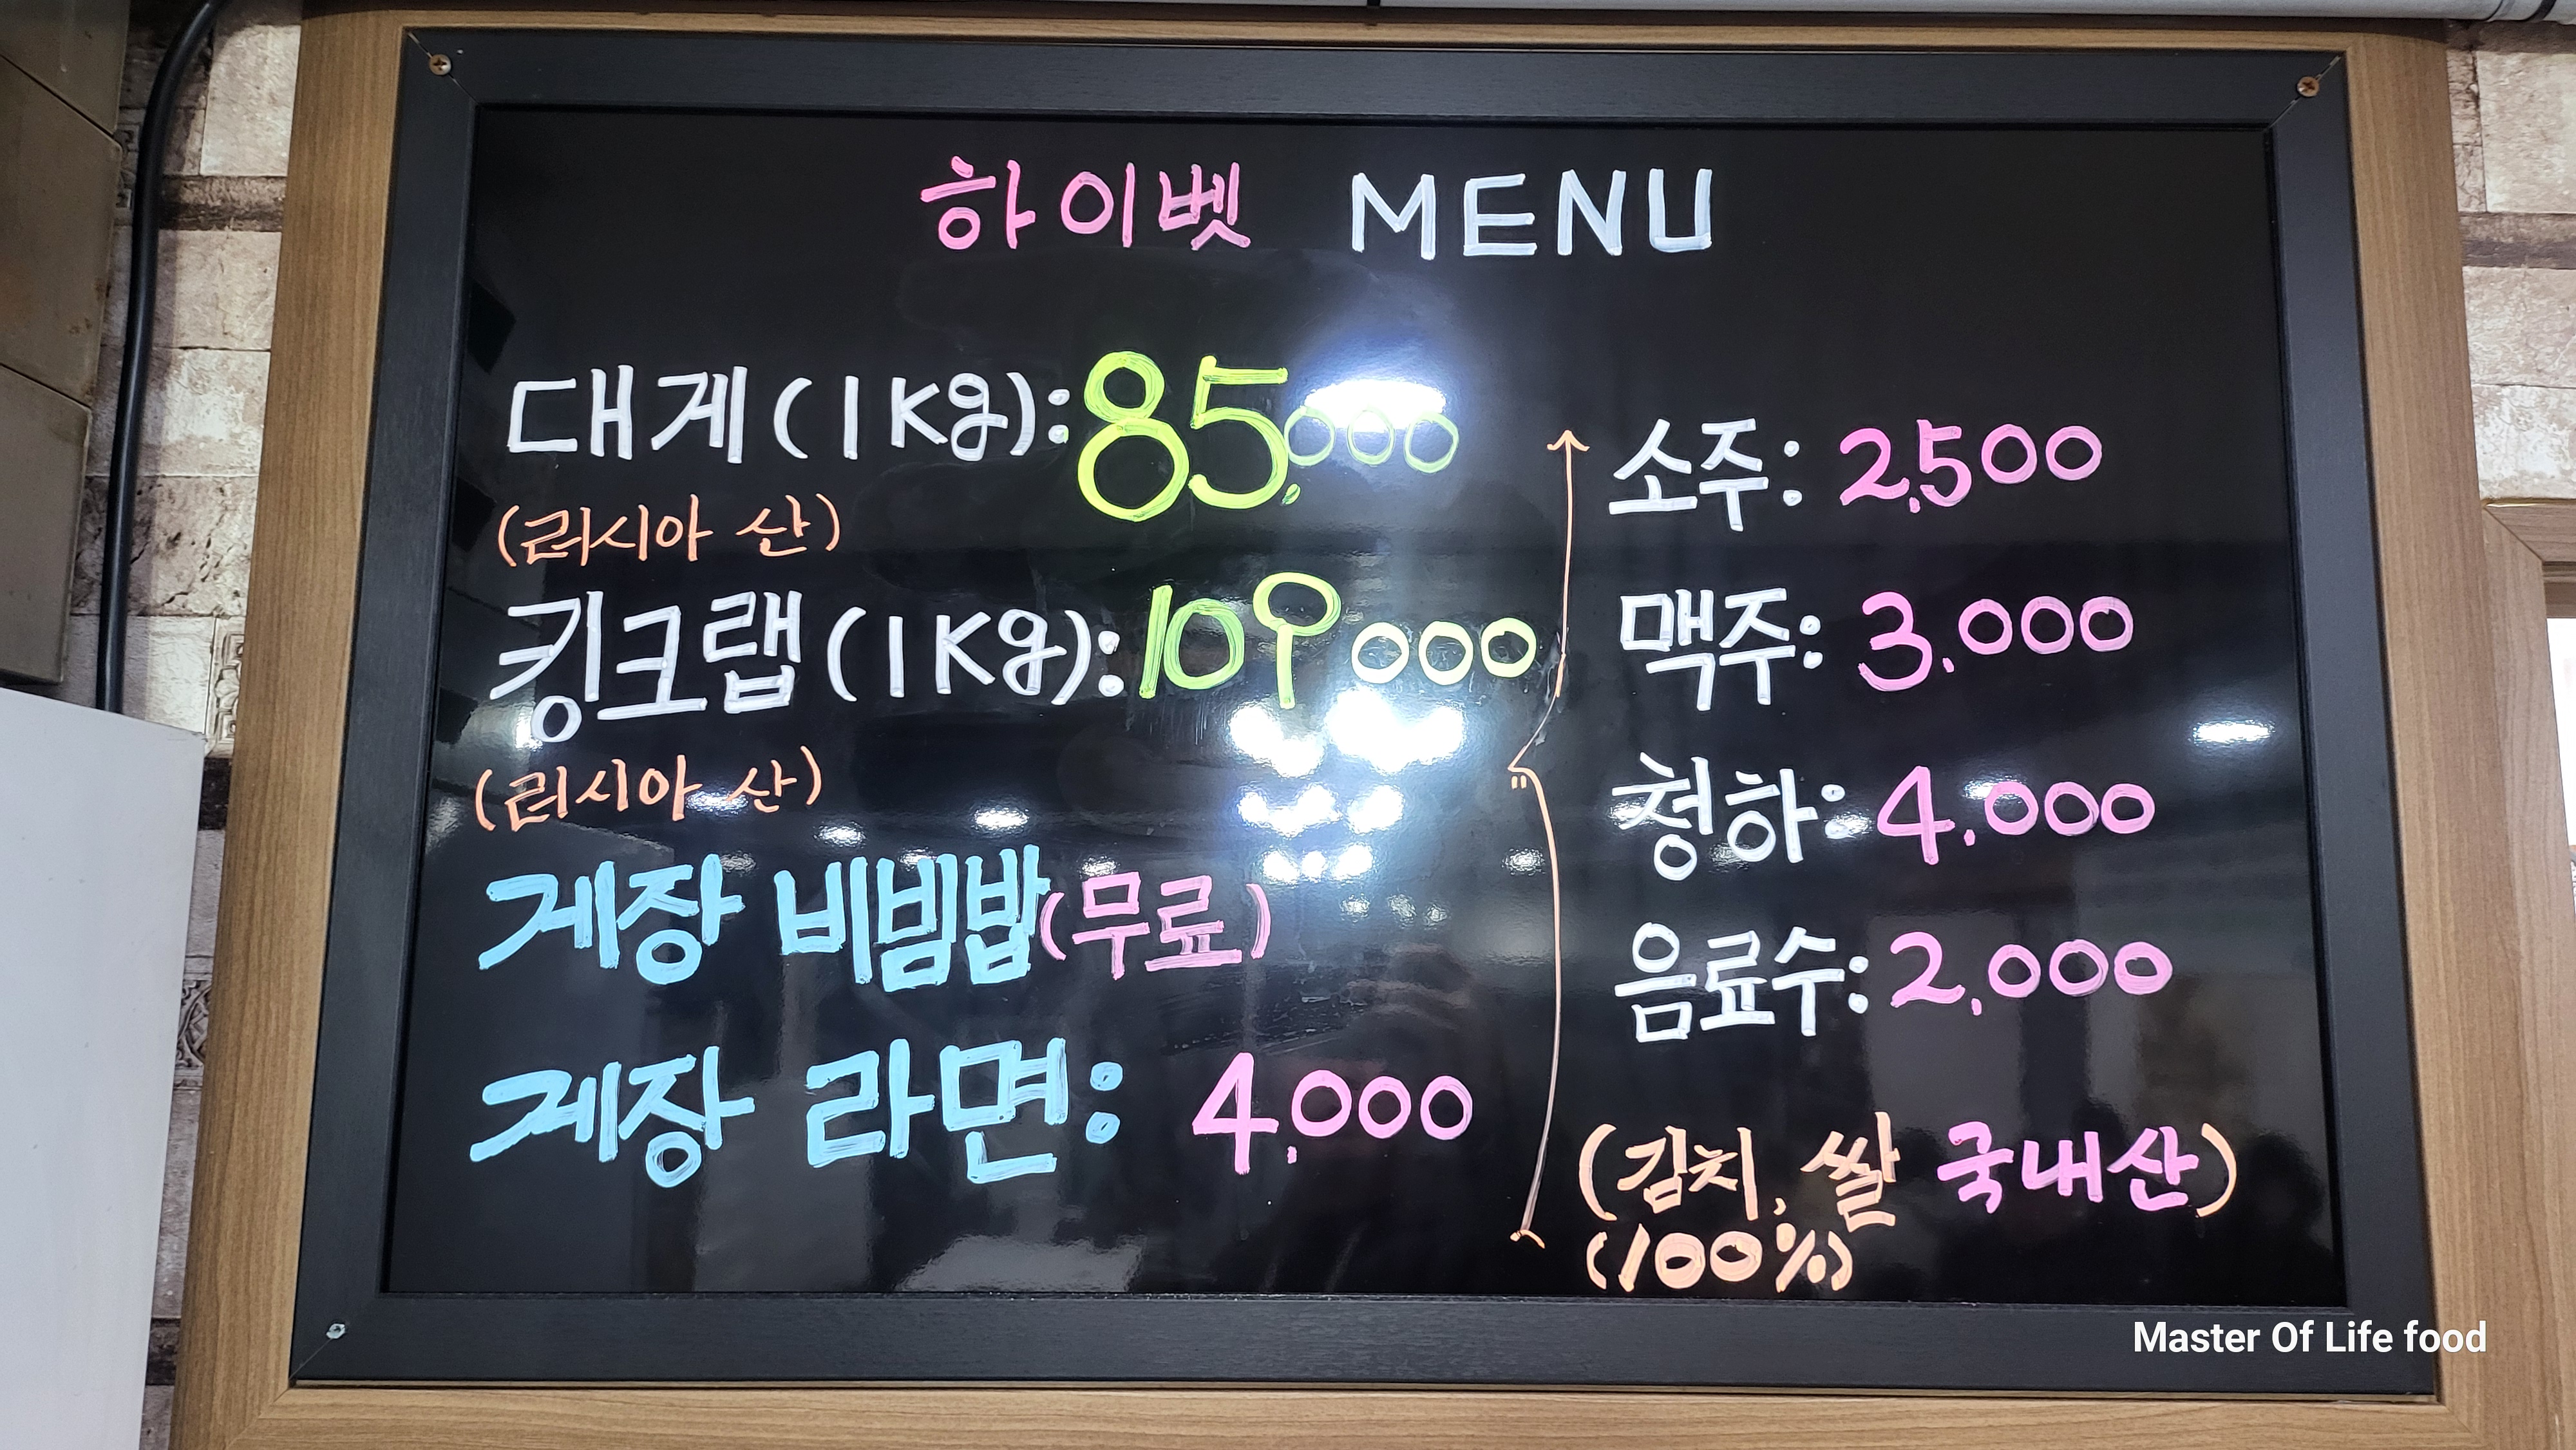 하이벳 MENU
대게(1Kg):85,000
(러시아 산)
킹크랩(1Kg):109000
(러시아 산)
게장 비빔밥(무료)
게장 라면: 4,000
소주: 2,500
맥주: 3,000
청하: 4,000
음료수: 2,000
(김치, 쌀 국내산)
(100%)
Master Of Life food